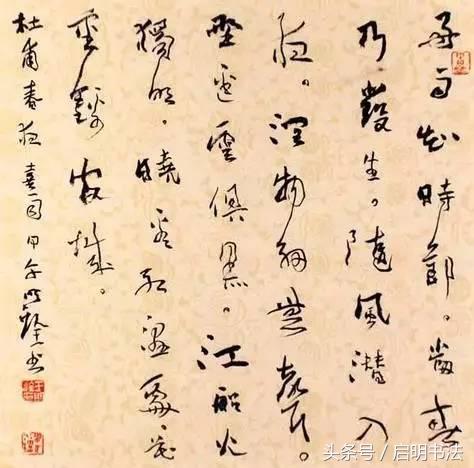 好雨知時節。當春
乃發生。隨風潛入
夜。潤物細無聲。
野逕雲俱黑。江船火
獨明。曉看紅濕處。花
重錦官城。
杜甫春夜喜雨甲午书
头条号 / 启明书法